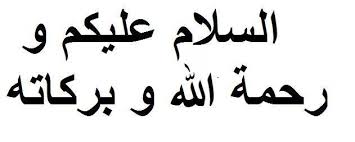 السلام عليكم و
رحمة الله و بركاته